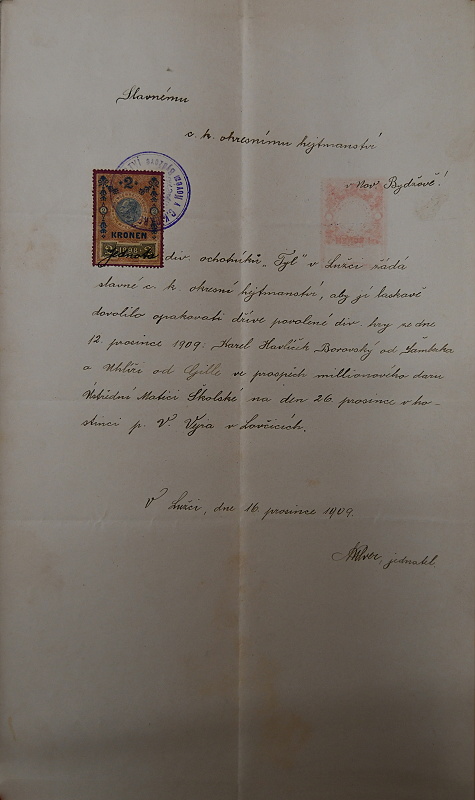 Slavnému
c. k. okresnímu hejtmanství
v Nov. Bydžově!
2
KRONEN
1898
Jednota div. ochotníků „Tyl" v Lužci žádá
slavné c. k. okresní hejtmanství, aby jí laskavě
dovolilo opakovati dříve povolené div. hry ze dne
12. prosince 1909: Karel Havlíček Borovský od Šamberka
a Uhlíři od Gille ve prospěch millionového daru
Ústřední Matici Školské na den 26. prosince v ho-
stinci p. V. Výra v Lovčicích.
V Lužci, dne 16. prosince 1909.
jednatel.